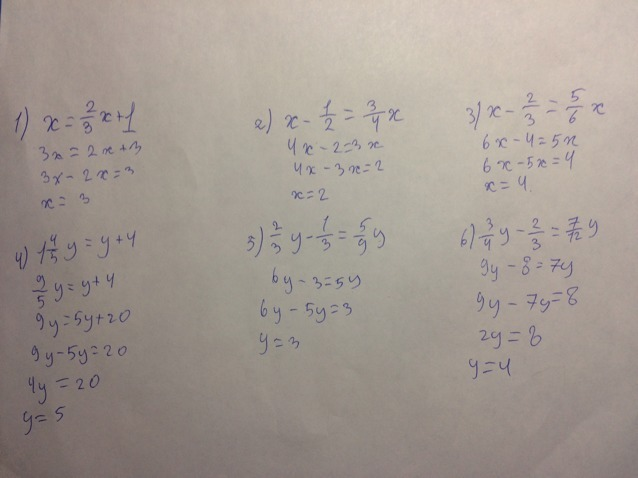 1) x = 2/3 x + 1
3x = 2x + 3
3x - 2x = 3
x = 3
2) x - 1/2 = 3/4 x
4x - 2 = 3x
4x - 3x = 2
x = 2
3) x - 2/3 = 5/6 x
6x - 4 = 5x
6x - 5x = 4
x = 4.
4) 1 4/5 y = y + 4
9/5 y = y + 4
9y = 5y + 20
9y - 5y = 20
4y = 20
y = 5
5) 2/3 y - 1/3 = 5/9 y
6y - 3 = 5y
6y - 5y = 3
y = 3
6) 3/4 y - 2/3 = 7/12 y
9y - 8 = 7y
9y - 7y = 8
2y = 8
y = 4